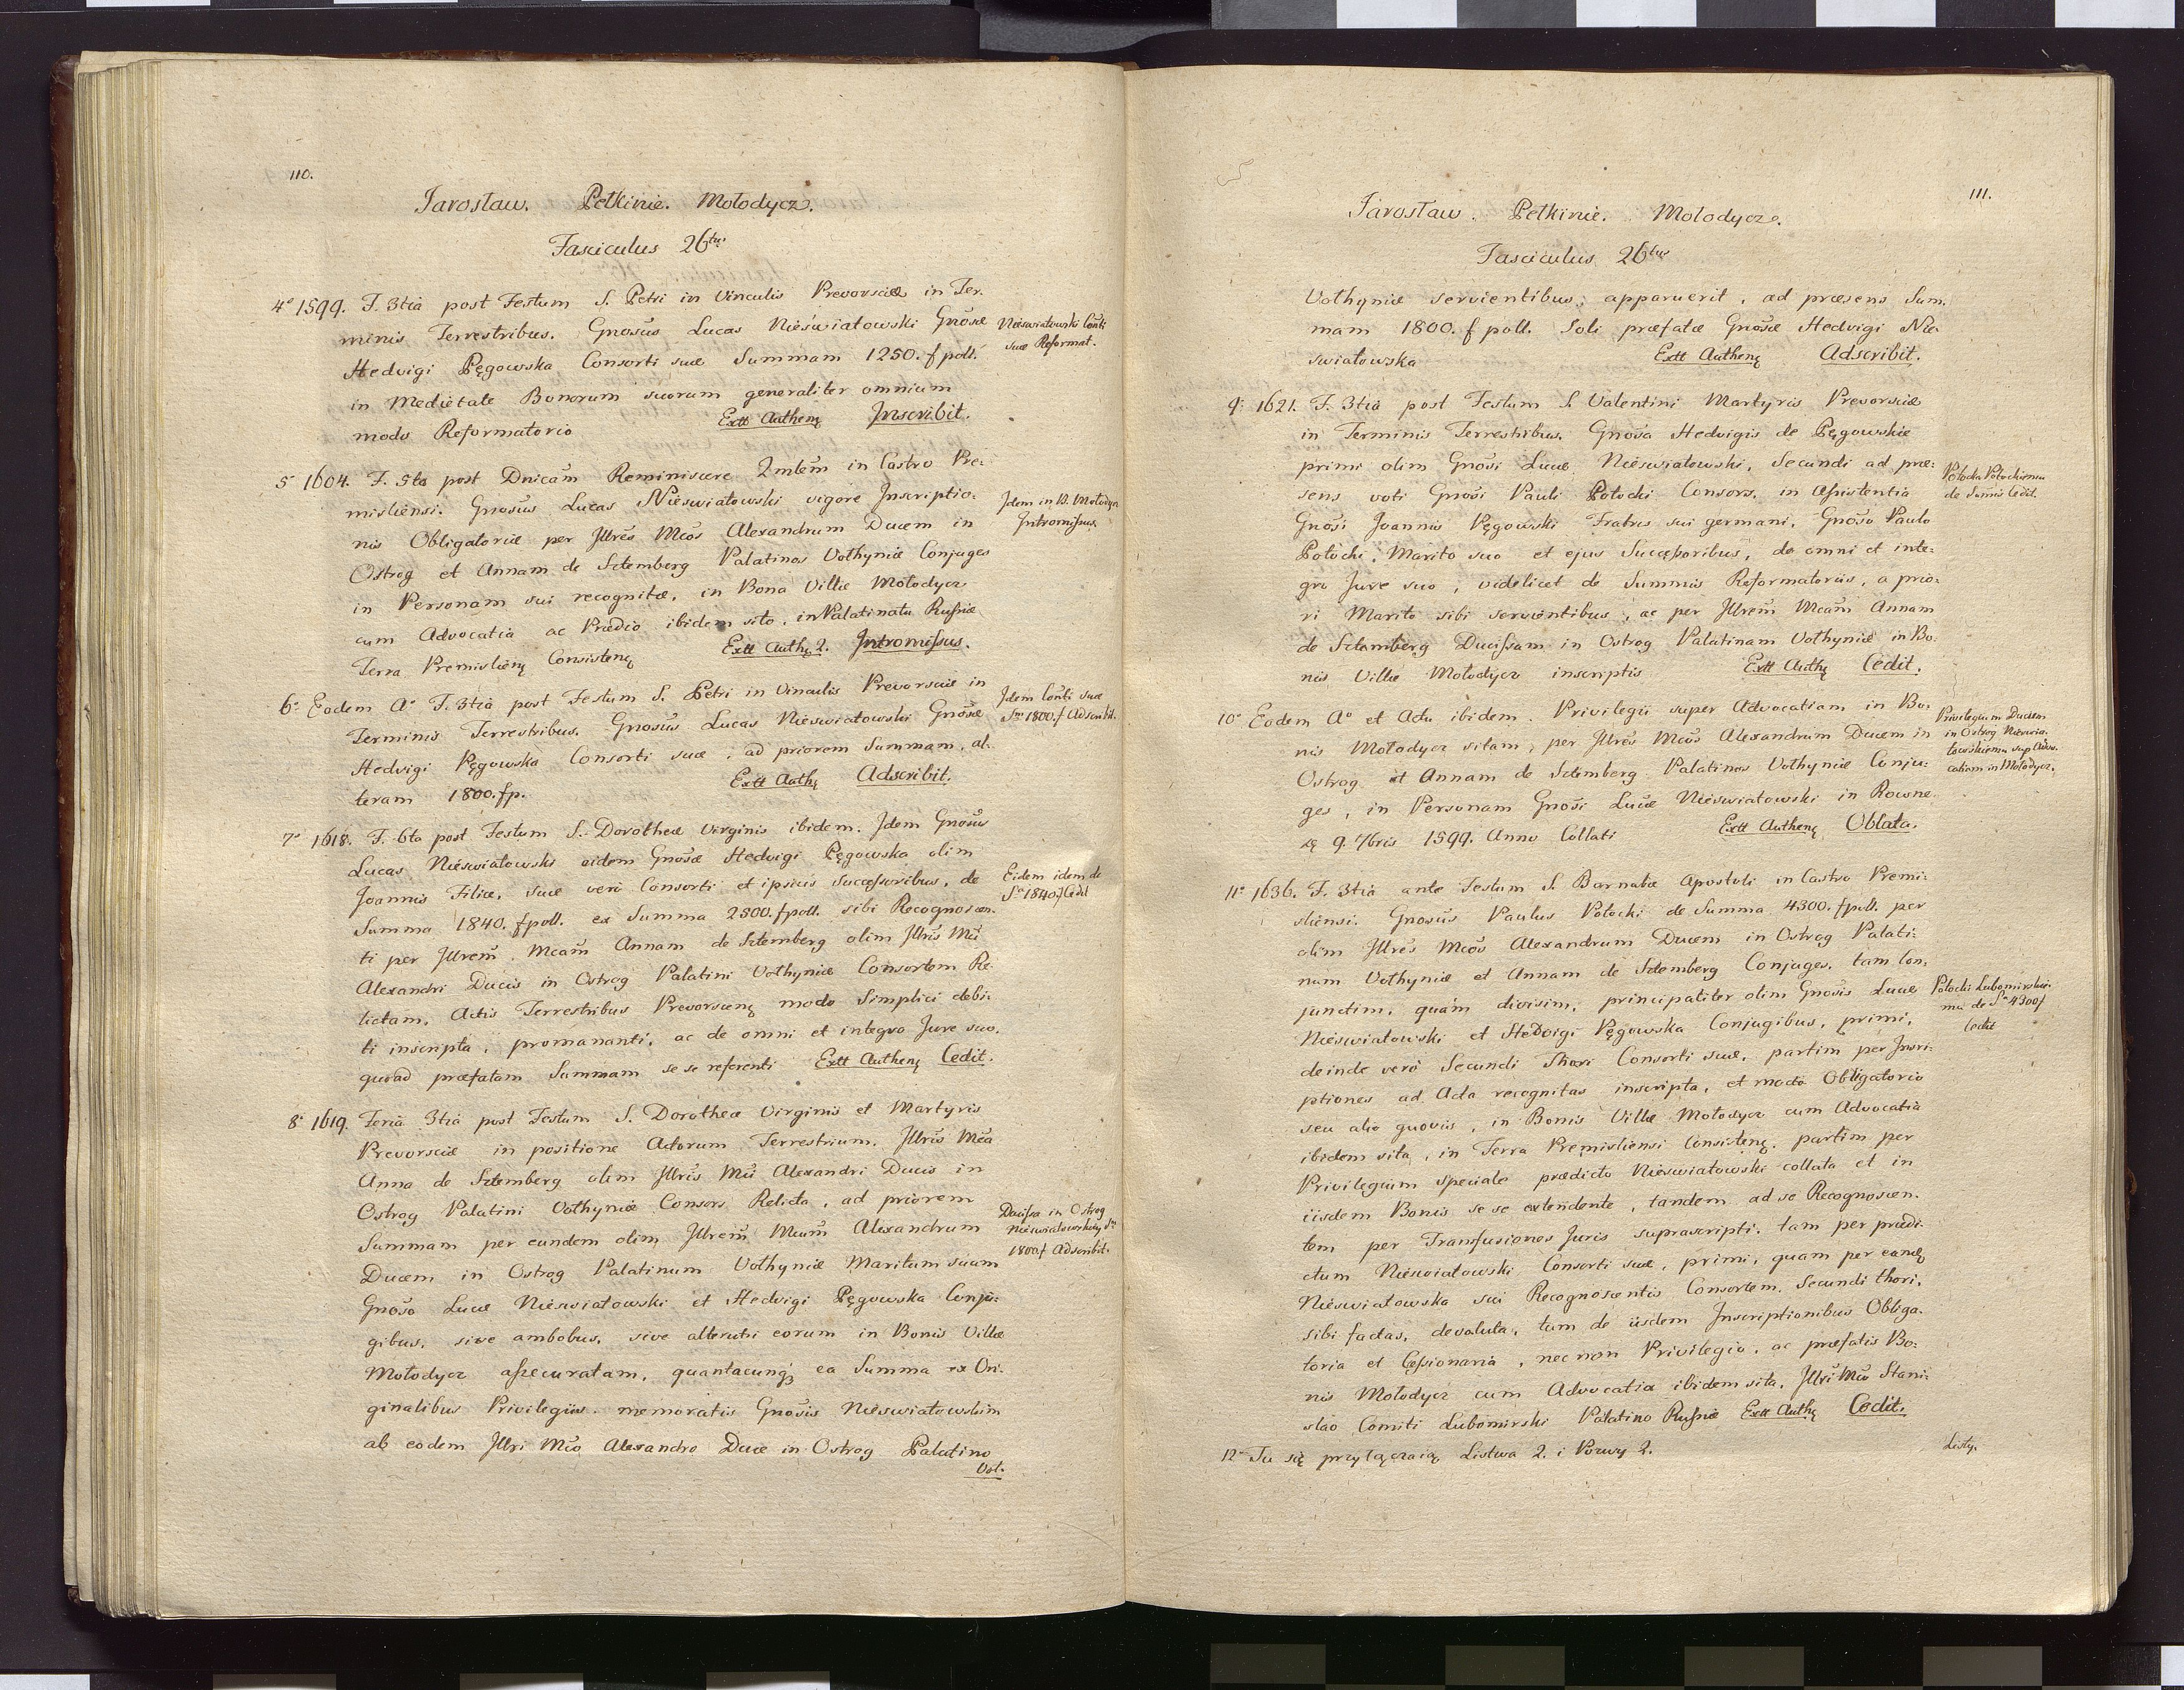 110.
Jarosław. Pełkinie. Mołodycz.
Fasciculus 26tus
4º 1599. F. 3tiâ post Festum S. Petri in Vinculis Prevorsciæ in Ter:
minis Terrestribus. Gnosus Lucas Nieświatowski Gnosæ
Hedvigi Pęgowska Consorti suæ Summam 1250. f poll.
in Medietate Bonorum suorum generaliter omnium
modo Reformatorio Extt Authenę Inscribit.
Nieświatowski Conti
suæ Reformat.
5º 1604. F. 5ta post Dnicam Reminiscere Qmlem in Castro Pre:
misliensi. Gnosus Lucas Nieswiatowski vigore Inscriptio:
nis Obligatoriæ per Jllres Mcos Alexandrum Ducem in
Ostrog et Annam de Sztemberg Palatinos Vołhyniæ Conjuges
in Personam sui recognitæ, in Bona Villæ Mołodycz
cum Advocatia ac Prædio ibidem sito, in Palatinatu Russiæ
Terra Premislienę Consistenę Extt Authę 2. Intromissus.
Idem in B. Mołodycz
Intromissus.
6º Eodem Aº F. 3tiâ post Festum S. Petri in Vinculis Prevorsciæ in
Terminis Terrestribus. Gnosus Lucas Nieswiatowski Gnosæ
Hedvigi Pęgowska Consorti suæ, ad priorem Summam, al:
teram 1800. fp. Extt Authę Adscribit.
Idem Conti suæ
Sm 1800. f Adscribit.
7º 1618. F. 6ta post Festum S. Dorotheæ Virginis ibidem. Idem Gnosus
Lucas Nieswiatowski eidem Gnosæ Hedvigi Pęgowska olim
Joannis Filiæ, suæ verò Consorti et ipsius Successoribus, de
Summa 1840. f poll. ex Summa 2500. f poll. sibi Recognoscen:
ti per Jllrem Mcam Annam de Sztemberg olim Jllris Mci
Alexandri Ducis in Ostrog Palatini Vołhyniæ Consortem Re:
lictam, Actis Terrestribus Prevorscenę modo Simplici debi:
ti inscripta, promananti, ac de omni et integro Jure suo,
quoad præfatam Summam se se referenti Extt Authenę Cedit.
Eidem idem de
Sa 1840. f Cedit
8º 1619. Feriâ 3tiâ post Festum S. Dorotheæ Virginis et Martyris
Prevorsciæ in positione Actorum Terrestrium. Jllris Mca
Anna de Sztemberg olim Jllris Mci Alexandri Ducis in
Ostrog Palatini Vołhyniæ Consors Relicta, ad priorem
Summam per eundem olim Jllrem Mcum Alexandrum
Ducem in Ostrog Palatinum Vołhyniæ Maritum suum
Gnoso Lucæ Nieswiatowski et Hedvigi Pęgowska Conju:
gibus, sive ambobus, sive alterutri eorum in Bonis Villæ
Mołodycz assecuratam, quantacunqȝ ea Summa ex Ori:
ginalibus Privilegiis memoratis Gnosis Nieswiatowskim
ab eodem Jllri Mco Alexandro Duce in Ostrog Palatino
Voł.
Ducissa in Ostrog
Nieswiatowskiej Sm
1800 f Adscribit.
111.
Jarosław. Pełkinie. Mołodycze.
Fasciculus 26tus
Vołhyniæ servientibus, apparuerit, ad præsens Sum:
mam 1800. f poll. Soli præfatæ Gnosæ Hedvigi Nie:
swiatowska Extt Authenę Adscribit.
9º 1621. F. 3tiâ post Festum S. Valentini Martyris Prevorsciæ
in Terminis Terrestribus. Gnosa Hedvigis de Pęgowskie
primi olim Gnosi Lucæ Nieswiatowski, Secundi ad præ:
sens voti Gnosi Pauli Potocki Consors, in Assistentia
Gnosi Joannis Pęgowski Fratris sui germani, Gnoso Paulo
Potocki Marito suo et ejus Successoribus, de omni et inte:
gro Jure suo, videlicet de Summis Reformatoriis, a prio:
ri Marito sibi servientibus, ac per Jllrem Mcam Annam
de Sztemberg Ducissam in Ostrog Palatinam Vołhyniæ in Bo:
nis Villæ Mołodycz inscriptis Extt Authę Cedit.
Potocka Potockiemu
de Summis Cedit.
10º Eodem Aº et Actu ibidem. Privilegii super Advocatiam in Bo:
nis Mołodycz sitam, per Jllres Mcos Alexandrum Ducem in
Ostrog et Annam de Sztemberg Palatinos Vołhyniæ Conju:
ges, in Personam Gnosi Lucæ Nieswiatowski in Rowne
dę 9. 7bris 1599. Anno Collati Extt Authenę Oblata.
Privilegium Ducum
in Ostrog Nieswia:
towskiemu sup Advo:
catiam in Mołodycz.
11º 1636. F. 3tiâ ante Festum S. Barnabæ Apostoli in Castro Premi:
sliensi. Gnosus Paulus Potocki de Summa 4300. f poll. per
olim Jllres Mcos Alexandrum Ducem in Ostrog Palati:
num Vołhyniæ et Annam de Sztemberg Conjuges, tam con:
junctim, quàm divisim, principaliter olim Gnosis Lucæ
Nieswiatowski et Hedvigi Pęgowska Conjugibus, primi,
deinde verò Secundi Thori Consorti suæ, partim per Inscri:
ptiones ad Acta recognitas inscripta, et modo Obligatorio
seu alio quovis, in Bonis Villæ Mołodycz cum Advocatia
ibidem sita, in Terra Premisliensi Consistenę, partim per
Privilegium speciale prædicto Nieswiatowski collata et in
iisdem Bonis se se extendente, tandem ad se Recognoscen:
tem per Transfusiones Juris suprascripti, tam per prædi:
ctum Nieswiatowski Consorti suæ, primi, quam per eandę
Nieswiatowska sui Recognoscentis Consortem, Secundi thori,
sibi factas, devoluta, tum de iisdem Inscriptionibus Obliga:
toria et Cessionaria, nec non Privilegio, ac præfatis Bo:
nis Mołodycz cum Advocatia ibidem sita, Jllri Mco Stani:
slao Comiti Lubomirski Palatino Russiæ Extt Authę Cedit.
Potocki Lubomirskie:
mu de Sa 4300 f
Cedit
12º Tu się przyłączaią Listwa 2. i Pozwy 2.
Listy.